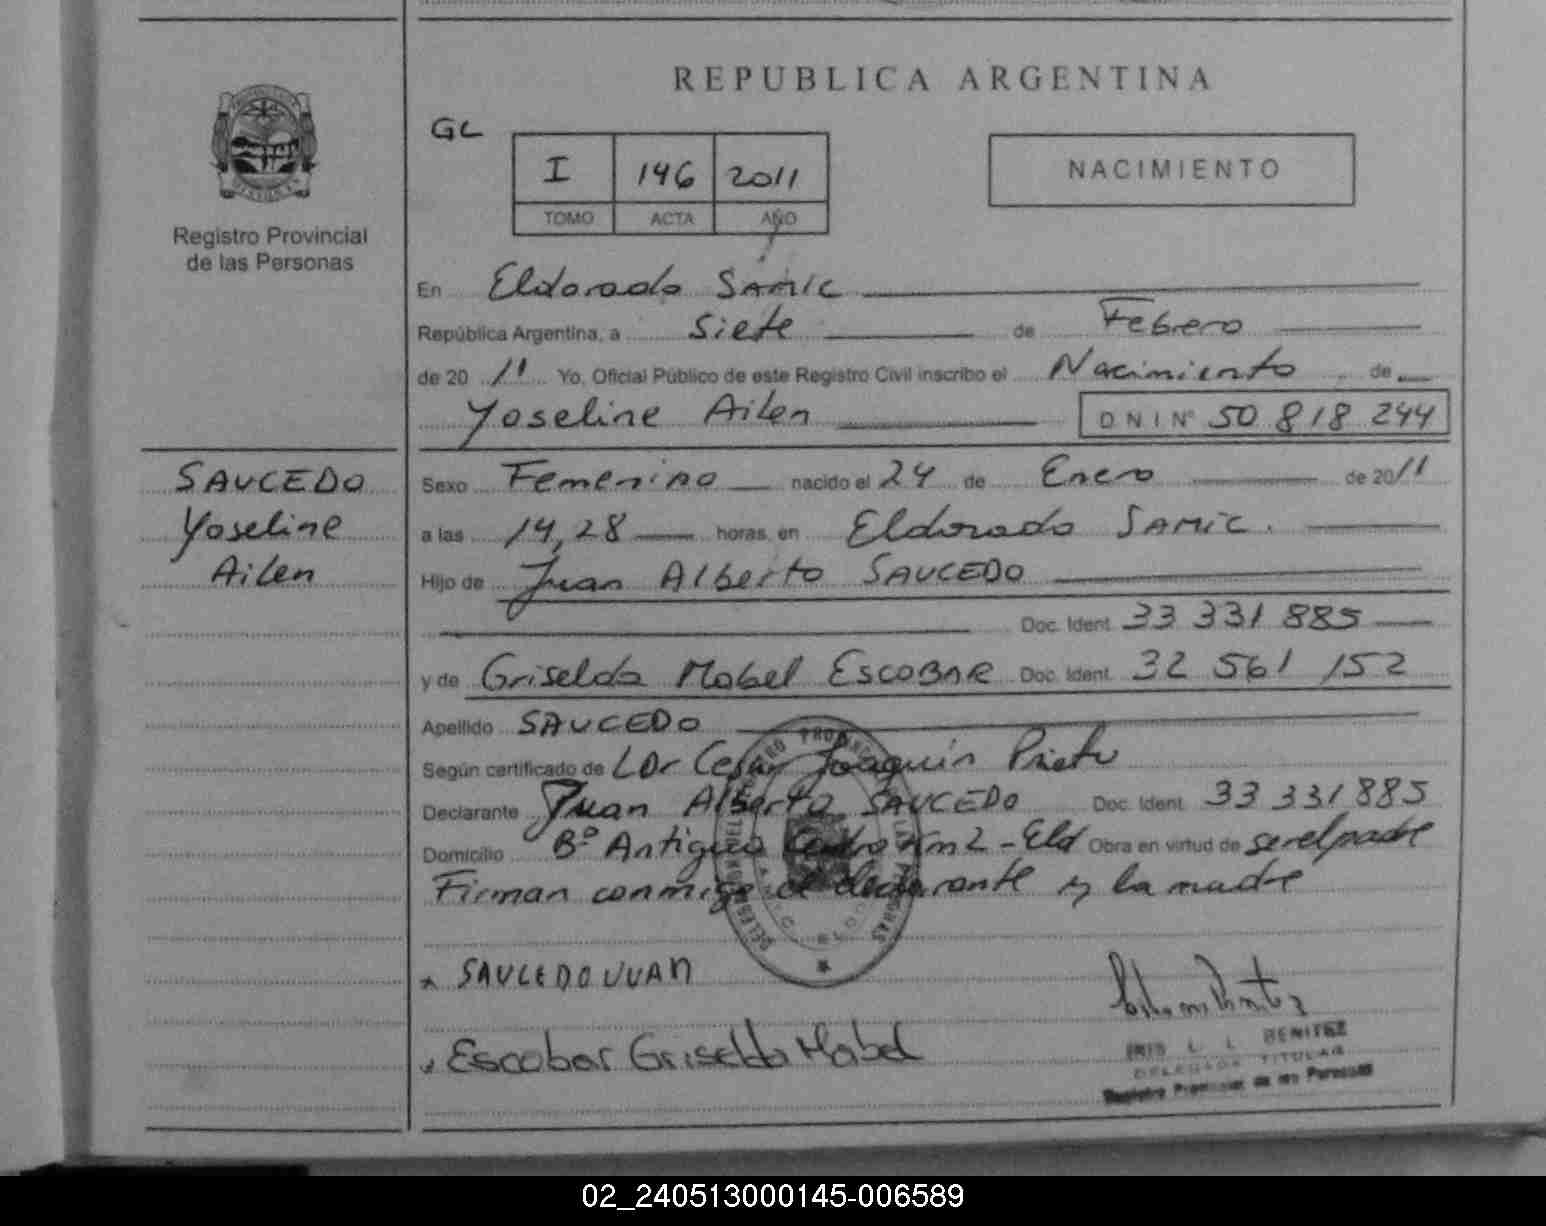 REPUBLICA ARGENTINA
GL
I 146 2011
TOMO ACTA AÑO
NACIMIENTO
Registro Provincial
de las Personas
En Eldorado SAMIC
República Argentina, a Siete de Febrero
de 20 11 Yo, Oficial Público de este Registro Civil inscribo el Nacimiento de
Yoseline Ailen D N I Nº 50 818 244
SAUCEDO
Yoseline
Ailen
Sexo Femenino nacido el 24 de Enero de 20 11
a las 14,28 horas, en Eldorado SAMIC.
Hijo de Juan Alberto SAUCEDO
Doc. Ident. 33 331 885
y de Griselda Mabel ESCOBAR Doc. Ident. 32 561 152
Apellido SAUCEDO
Según certificado de LDr Cesar Joaquín Prieto
Declarante Juan Alberto SAUCEDO Doc. Ident. 33 331 885
Domicilio Bº Antiguo Centro Km 2 - Eld Obra en virtud de ser el padre
Firman conmigo el declarante y la madre
SAUCEDO JUAN
Escobar Griselda Mabel
IRIS L. L. BENITEZ
DELEGADA TITULAR
Registro Provincial de las Personas
02_240513000145-006589